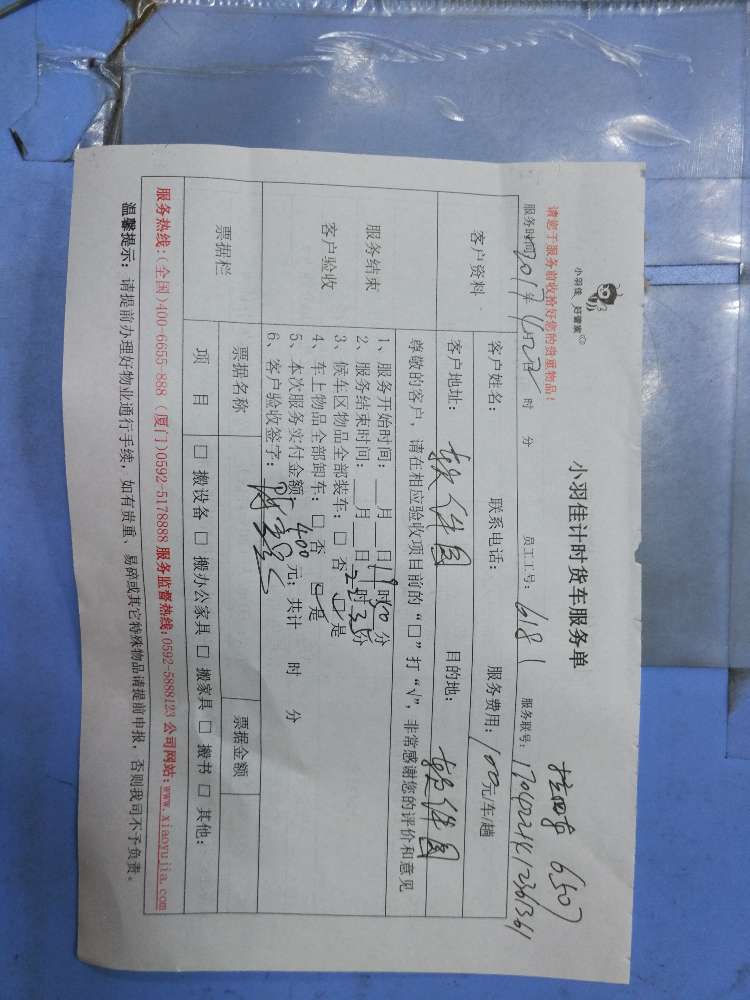 小羽佳 好管家
小羽佳计时货车服务单
请您于服务前收拾好您的贵重物品！
拉四车 6507
服务时间 2017年4月2日 时 分 员工工号：6181 服务联号：
客户资料
客户姓名： 联系电话： 服务费用：100元/车/趟
客户地址：软件园 目的地：软件园
尊敬的客户，请在相应验收项目前的“□”打“√”，非常感谢您的评价和意见
服务结束
客户验收
1、服务开始时间：__月__日19时50分
2、服务结束时间：__月__日22时35分
3、候车区物品全部装车：□ 否 ☑ 是
4、车上物品全部卸车：□ 否 ☑ 是
5、本次服务实付金额：400元；共计 时 分
6、客户验收签字：
票据栏
票据名称 票据金额
项 目 □ 搬设备 □ 搬办公家具 □ 搬家具 □ 搬书 □ 其他：
服务热线：(全国)400-6655-888 (厦门)0592-5178888 服务监督热线:0592-5888123 公司网站:www.xiaoyujia.com
温馨提示：请提前办理好物业通行手续，如有贵重、易碎或其它特殊物品请提前申报，否则我司不予负责。